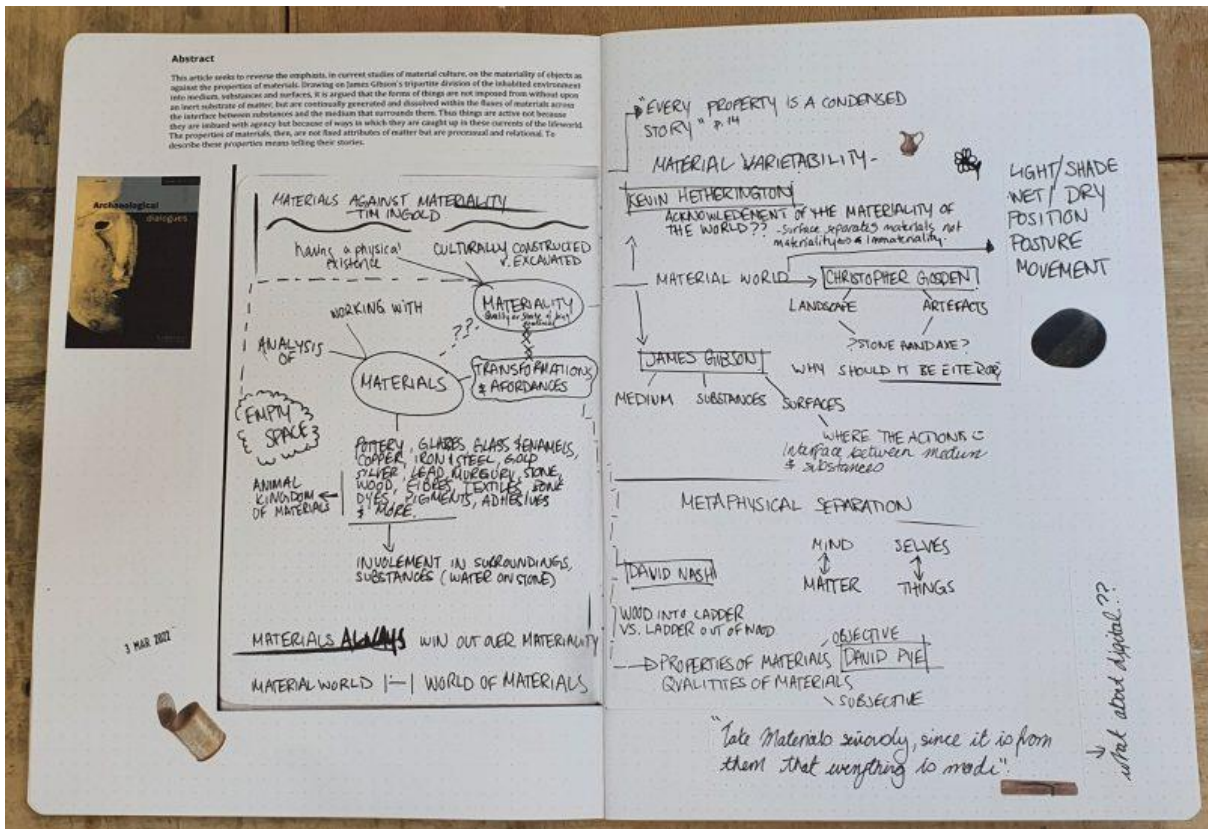 Abstract
This article seeks to reverse the emphasis, in current studies of material culture, on the materiality of objects as
against the properties of materials. Drawing on James Gibson's tripartite division of the inhabited environment
into medium, substances and surfaces, it is argued that the forms of things are not imposed from without upon
an inert substrate of matter, but are continually generated and dissolved within the fluxes of materials across
the interface between substances and the medium that surrounds them. Thus things are active not because
they are imbued with agency but because of ways in which they are caught up in these currents of the lifeworld.
The properties of materials, then, are not fixed attributes of matter but are processual and relational. To
describe these properties means telling their stories.
Archaeological
dialogues
MATERIALS AGAINST MATERIALITY
TIM INGOLD
having a physical
existence
CULTURALLY CONSTRUCTED
v. EXCAVATED
WORKING WITH
MATERIALITY
Quality or State of being
ANALYSIS
OF
??
MATERIALS
TRANSFORMATIONS
& AFORDANCES
EMPTY
SPACE
POTTERY, GLAZES, GLASS & ENAMELS,
COPPER, IRON & STEEL, GOLD
SILVER, LEAD, MURCURY, STONE,
WOOD, FIBRES, TEXTILES, BONE
DYES, PIGMENTS, ADHESIVES
& MORE.
ANIMAL
KINGDOM
OF MATERIALS
INVOLEMENT IN SURROUNDINGS,
SUBSTANCES (WATER ON STONE)
MATERIALS ALWAYS WIN OUT OVER MATERIALITY
MATERIAL WORLD |-| WORLD OF MATERIALS
3 MAR 2022
"EVERY PROPERTY IS A CONDENSED
STORY" p.14
MATERIAL VARIETABILITY-
KEVIN HETHERINGTON
ACKNOWLEDEMENT OF THE MATERIALITY OF
THE WORLD?? - Surface separates materials not
materiality & Immateriality.
MATERIAL WORLD
CHRISTOPHER GOSDEN
LANDSCAPE
ARTEFACTS
?STONE HANDAXE?
WHY SHOULD IT BE EITEROR?
JAMES GIBSON
MEDIUM
SUBSTANCES
SURFACES
WHERE THE ACTION IS
Interface between medium
& substances
METAPHYSICAL SEPARATION
MIND
SELVES
MATTER
THINGS
DAVID NASH
WOOD INTO LADDER
VS. LADDER OUT OF WOOD
OBJECTIVE
PROPERTIES OF MATERIALS
DAVID PYE
QUALITITES OF MATERIALS
SUBJECTIVE
"Take Materials seriously, since it is from
them that everything is made".
LIGHT/SHADE
WET/DRY
POSITION
POSTURE
MOVEMENT
what about digital??